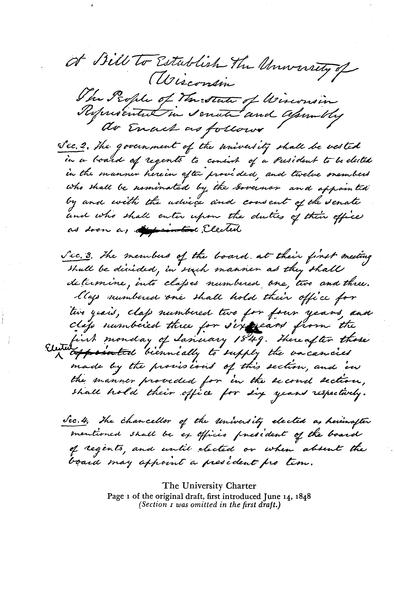 A Bill to Establish the University of
Wisconsin
The People of the State of Wisconsin
Represented in Senate and Assembly
do Enact as follows
Sec. 2. The government of the University shall be vested
in a board of regents to consist of a President to be elected
in the manner herein after provided, and twelve members
who shall be nominated by the Governor and appointed
by and with the advice and consent of the senate
and who shall enter upon the duties of their office
as soon as appointed Elected
Sec. 3. The members of the board at their first meeting
shall be divided, in such manner as they shall
determine, into classes numbered, one, two and three.
Class numbered one shall hold their office for
two years, class numbered two for four years, and
class numbered three for six years from the
first monday of January 1849. Thereafter those
Elected appointed biennially to supply the vacancies
made by the provisions of this section, and in
the manner provided for in the second section,
shall hold their office for six years respectively.
Sec. 4. The chancellor of the University elected as hereinafter
mentioned shall be ex officio president of the board
of regents, and until elected or when absent the
board may appoint a president pro tem.
The University Charter
Page 1 of the original draft, first introduced June 14, 1848
(Section 1 was omitted in the first draft.)